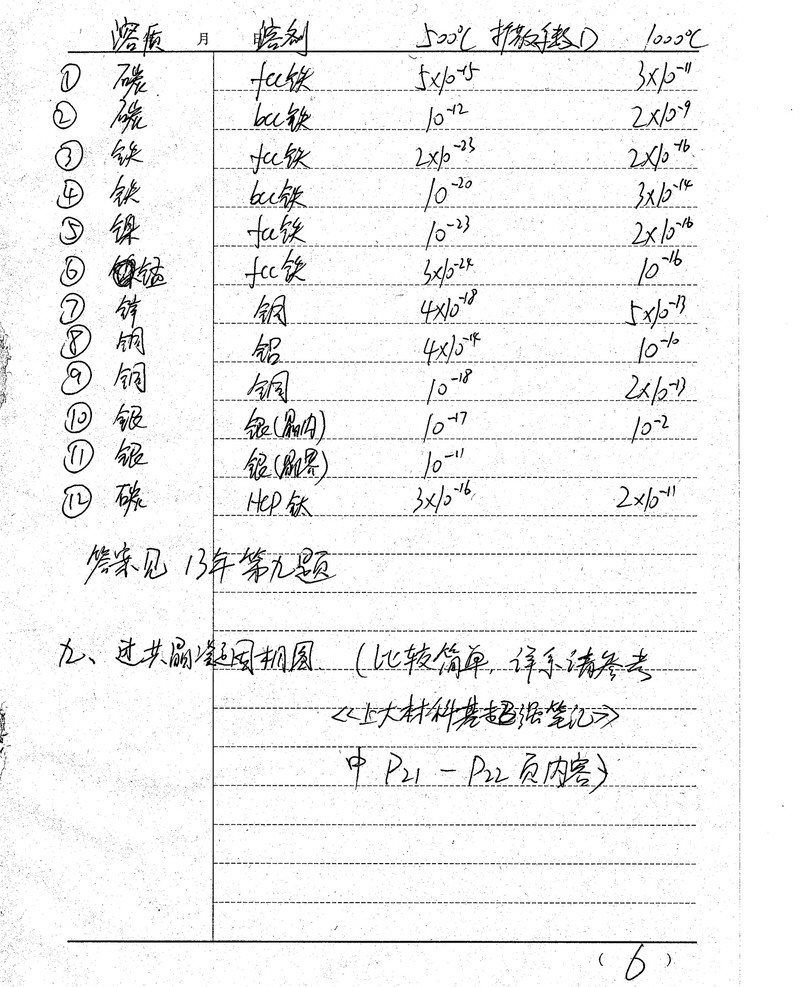 溶质 月 日 溶剂 500℃ 扩散系数D 1000℃
① 碳 fcc铁 5×10⁻¹⁵ 3×10⁻¹¹
② 碳 bcc铁 10⁻¹² 2×10⁻⁹
③ 铁 fcc铁 2×10⁻²³ 2×10⁻¹⁶
④ 铁 bcc铁 10⁻²⁰ 3×10⁻¹⁴
⑤ 镍 fcc铁 10⁻²³ 2×10⁻¹⁶
⑥ 锰 fcc铁 3×10⁻²⁴ 10⁻¹⁶
⑦ 锌 铜 4×10⁻¹⁸ 5×10⁻¹³
⑧ 铜 铝 4×10⁻¹⁴ 10⁻¹⁰
⑨ 铜 铜 10⁻¹⁸ 2×10⁻¹³
⑩ 银 银(晶内) 10⁻¹⁷ 10⁻²
⑪ 银 银(晶界) 10⁻¹¹
⑫ 碳 HCP钛 3×10⁻¹⁶ 2×10⁻¹¹
答案见 13年第九题
九、过共晶凝固相图 (比较简单, 详系请参考
《上大材科基超强笔记》
中 P21－P22 页内容)
(6)